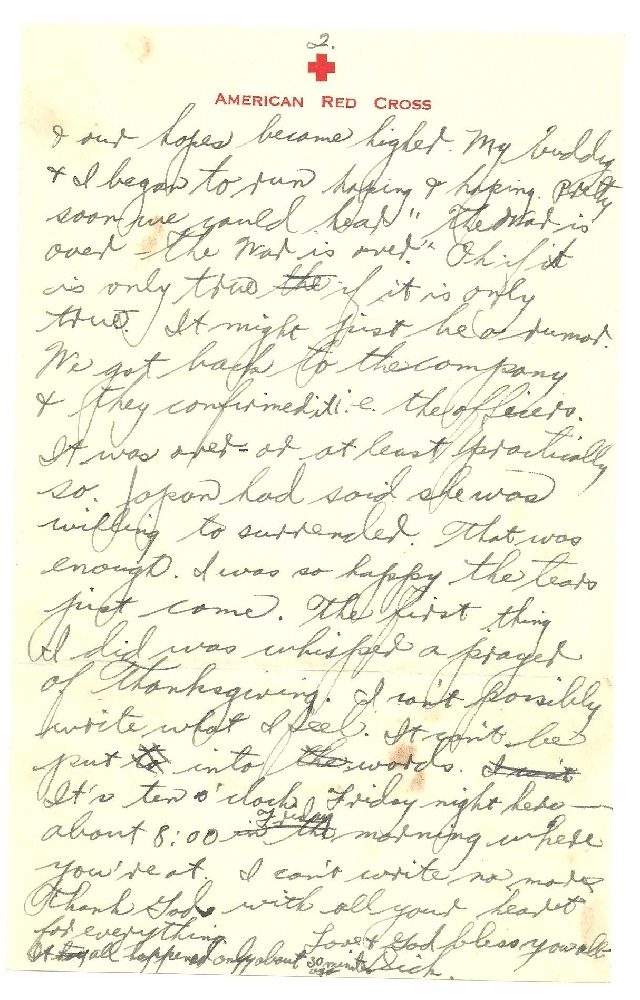 2.
AMERICAN RED CROSS
& our hopes became higher. My buddy
& I began to run hoping & hoping. Pretty
soon we could hear "The War is
over - the War is over." Oh if it
is only true the if it is only
true. It might just be a rumor.
We got back to the company
& they confirmed it i.e. the officers.
It was over - or at least practically
so. Japan had said she was
willing to surrender. That was
enough. I was so happy the tears
just came. The first thing
I did was whisper a prayer
of Thanksgiving. I can't possibly
write what I feel. It can't be
put to into the words. I can't
It's ten o'clock Friday night here —
about 8:00 in the Friday morning where
you're at. I can't write no more
Thank God with all your heart
for everything.
Love & God bless you all
It all happened only about 30 minutes ago
Dick.